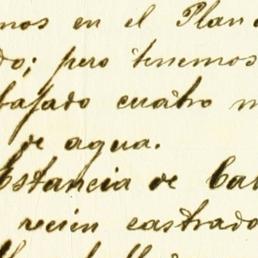 mos en el Plan
do; pero tenemos
bajado cuatro m
de agua.
Estancia de Ca
recien castrado